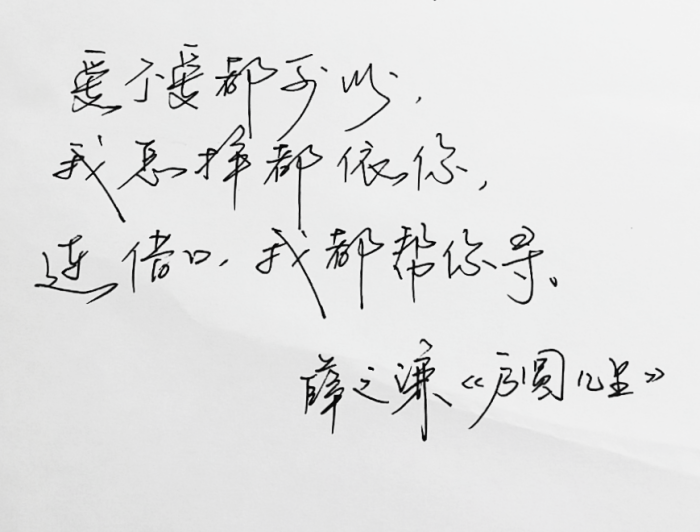 爱不爱都可以，
我怎样都依你，
连借口，我都帮你寻。
薛之谦《方圆几里》